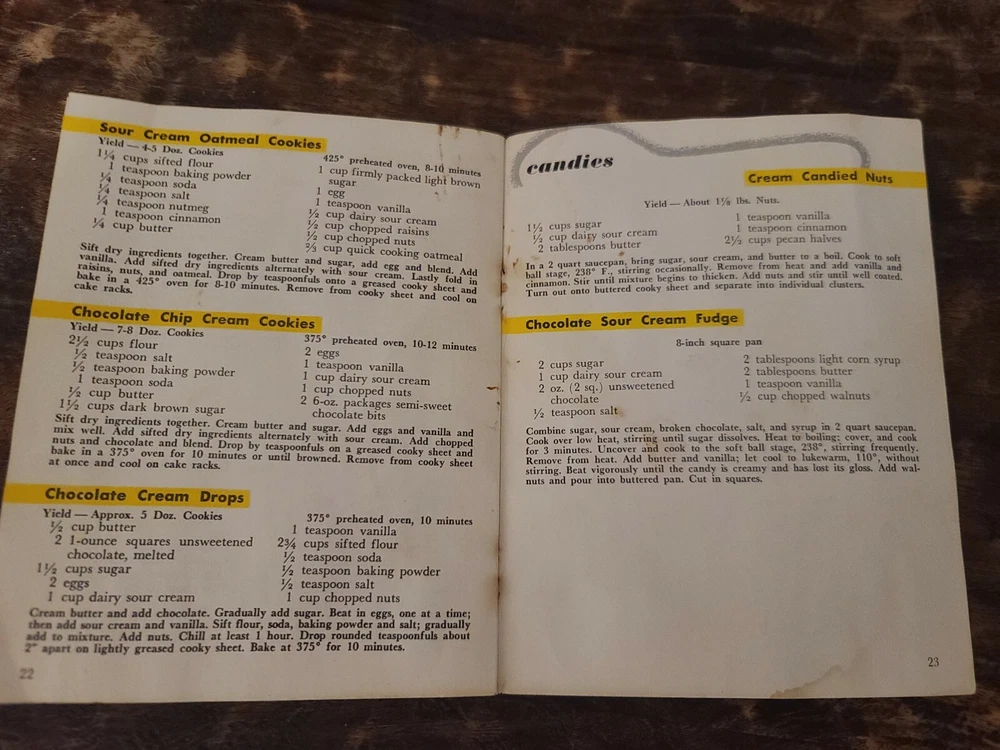 Sour Cream Oatmeal Cookies
Yield — 4-5 Doz. Cookies
1¼ cups sifted flour
1 teaspoon baking powder
¼ teaspoon soda
¼ teaspoon salt
¼ teaspoon nutmeg
1 teaspoon cinnamon
¼ cup butter
425° preheated oven, 8-10 minutes
1 cup firmly packed light brown
sugar
1 egg
1 teaspoon vanilla
½ cup dairy sour cream
½ cup chopped raisins
½ cup chopped nuts
⅔ cup quick cooking oatmeal
Sift dry ingredients together. Cream butter and sugar, add egg and blend. Add
vanilla. Add sifted dry ingredients alternately with sour cream. Lastly fold in
raisins, nuts, and oatmeal. Drop by teaspoonfuls onto a greased cooky sheet and
bake in a 425° oven for 8-10 minutes. Remove from cooky sheet and cool on
cake racks.
Chocolate Chip Cream Cookies
Yield — 7-8 Doz. Cookies
2½ cups flour
½ teaspoon salt
½ teaspoon baking powder
1 teaspoon soda
½ cup butter
1½ cups dark brown sugar
375° preheated oven, 10-12 minutes
2 eggs
1 teaspoon vanilla
1 cup dairy sour cream
1 cup chopped nuts
2 6-oz. packages semi-sweet
chocolate bits
Sift dry ingredients together. Cream butter and sugar. Add eggs and vanilla and
mix well. Add sifted dry ingredients alternately with sour cream. Add chopped
nuts and chocolate and blend. Drop by teaspoonfuls on a greased cooky sheet and
bake in a 375° oven for 10 minutes or until browned. Remove from cooky sheet
at once and cool on cake racks.
Chocolate Cream Drops
Yield — Approx. 5 Doz. Cookies
½ cup butter
2 1-ounce squares unsweetened
chocolate, melted
1½ cups sugar
2 eggs
1 cup dairy sour cream
375° preheated oven, 10 minutes
1 teaspoon vanilla
2¾ cups sifted flour
½ teaspoon soda
½ teaspoon baking powder
½ teaspoon salt
1 cup chopped nuts
Cream butter and add chocolate. Gradually add sugar. Beat in eggs, one at a time;
then add sour cream and vanilla. Sift flour, soda, baking powder and salt; gradually
add to mixture. Add nuts. Chill at least 1 hour. Drop rounded teaspoonfuls about
2" apart on lightly greased cooky sheet. Bake at 375° for 10 minutes.
22
candies
Cream Candied Nuts
Yield — About 1½ lbs. Nuts.
1½ cups sugar
½ cup dairy sour cream
2 tablespoons butter
1 teaspoon vanilla
1 teaspoon cinnamon
2½ cups pecan halves
In a 2 quart saucepan, bring sugar, sour cream, and butter to a boil. Cook to soft
ball stage, 238° F., stirring occasionally. Remove from heat and add vanilla and
cinnamon. Stir until mixture begins to thicken. Add nuts and stir until well coated.
Turn out onto buttered cooky sheet and separate into individual clusters.
Chocolate Sour Cream Fudge
8-inch square pan
2 cups sugar
1 cup dairy sour cream
2 oz. (2 sq.) unsweetened
chocolate
½ teaspoon salt
2 tablespoons light corn syrup
2 tablespoons butter
1 teaspoon vanilla
½ cup chopped walnuts
Combine sugar, sour cream, broken chocolate, salt, and syrup in 2 quart saucepan.
Cook over low heat, stirring until sugar dissolves. Heat to boiling; cover, and cook
for 3 minutes. Uncover and cook to the soft ball stage, 238°, stirring frequently.
Remove from heat. Add butter and vanilla; let cool to lukewarm, 110°, without
stirring. Beat vigorously until the candy is creamy and has lost its gloss. Add wal-
nuts and pour into buttered pan. Cut in squares.
23